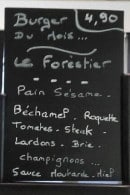 Burger 4,90
Du mois...
Le Forestier
- - - -
Pain Sésame -
Béchamel - Roquette
Tomates - Steak -
Lardons - Brie -
champignons...
Sauce Moutarde - miel